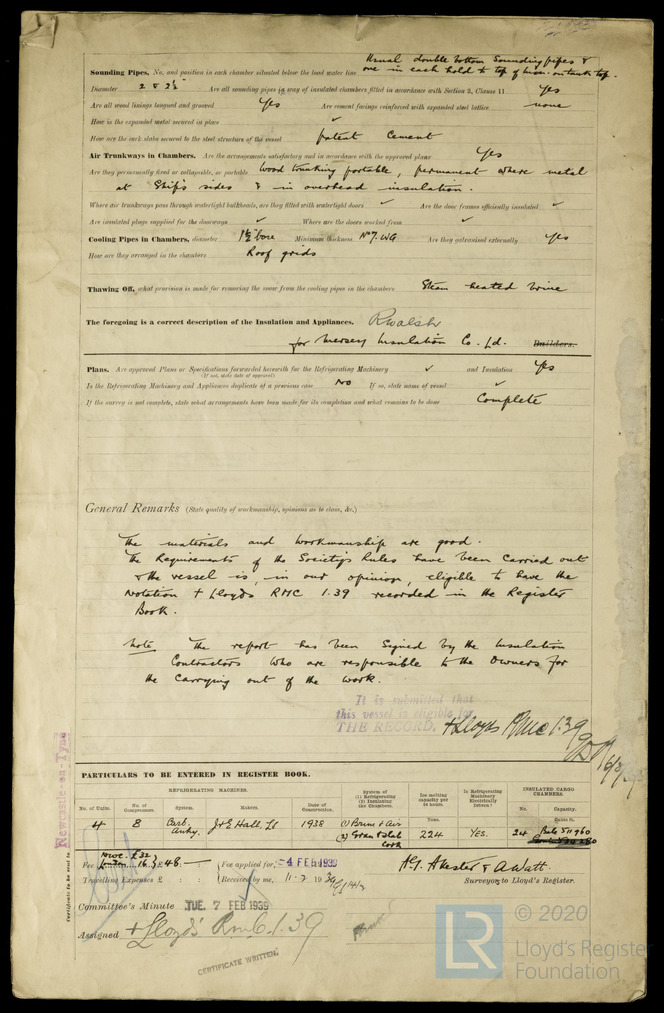 Sounding Pipes, No. and position in each chamber situated below the load water line Usual double bottom Sounding pipes &
one in each hold to top of insn. on tank top.
Diameter 2 & 2½" Are all sounding pipes in way of insulated chambers fitted in accordance with Section 3, Clause 11 Yes
Are all wood linings tongued and grooved Yes Are cement facings reinforced with expanded steel lattice none
How is the expanded metal secured in place ✓
How are the cork slabs secured to the steel structure of the vessel patent Cement
Air Trunkways in Chambers. Are the arrangements satisfactory and in accordance with the approved plans Yes
Are they permanently fixed or collapsible, or portable Wood trunking portable, permanent where metal
at Ship's sides & in overhead insulation.
Where air trunkways pass through watertight bulkheads, are they fitted with watertight doors ✓ Are the door frames efficiently insulated ✓
Are insulated plugs supplied for the doorways ✓ Where are the doors worked from ✓
Cooling Pipes in Chambers, diameter 1½" bore Minimum thickness No 7. WG Are they galvanised externally Yes
How are they arranged in the chambers Roof grids
Thawing Off, what provision is made for removing the snow from the cooling pipes in the chambers Steam heated brine
The foregoing is a correct description of the Insulation and Appliances. R Walsh
for Mersey Insulation Co. Ld. Builders.
Plans. Are approved Plans or Specifications forwarded herewith for the Refrigerating Machinery ✓ and Insulation Yes
(If not, state date of approval)
Is the Refrigerating Machinery and Appliances duplicate of a previous case No If so, state name of vessel ✓
If the survey is not complete, state what arrangements have been made for its completion and what remains to be done Complete
General Remarks (State quality of workmanship, opinions as to class, &c.)
The materials and workmanship are good.
The Requirements of the Society's Rules have been carried out
& the vessel is, in our opinion, eligible to have the
Notation + Lloyds RMC 1.39 recorded in the Register
Book.
Note The report has been signed by the Insulation
Contractors who are responsible to the Owners for
the carrying out of the work.
It is submitted that
this vessel is eligible for
THE RECORD. + Lloyds RMC 1.39
Newcastle-on-Tyne
Certificate to be sent to
PARTICULARS TO BE ENTERED IN REGISTER BOOK.
REFRIGERATING MACHINES.
No. of Units. No. of Compressors. System. Makers. Date of Construction. System of (1) Refrigerating (2) Insulating the Chambers. Ice melting capacity per 24 hours. Is Refrigerating Machinery Electrically Driven? INSULATED CARGO CHAMBERS.
Tons. No. Capacity. Cubic ft.
4 8 Carb. Anhy. J & E Hall, Ld 1938 (1) Brine & Air (2) Gran & Slab Cork 224 YES. 24 Bale 511960
Fee Nwc. £32 London 16 } £48 — Fee applied for, -4 FEB 1939
Travelling Expenses £ : : Received by me, 11-2 1939
A.G. Akester & A Watt
Surveyor to Lloyd's Register.
Committee's Minute TUE. 7 FEB 1939
Assigned + Lloyd's RMC. 1.39
CERTIFICATE WRITTEN.
LR
© 2020
Lloyd's Register
Foundation